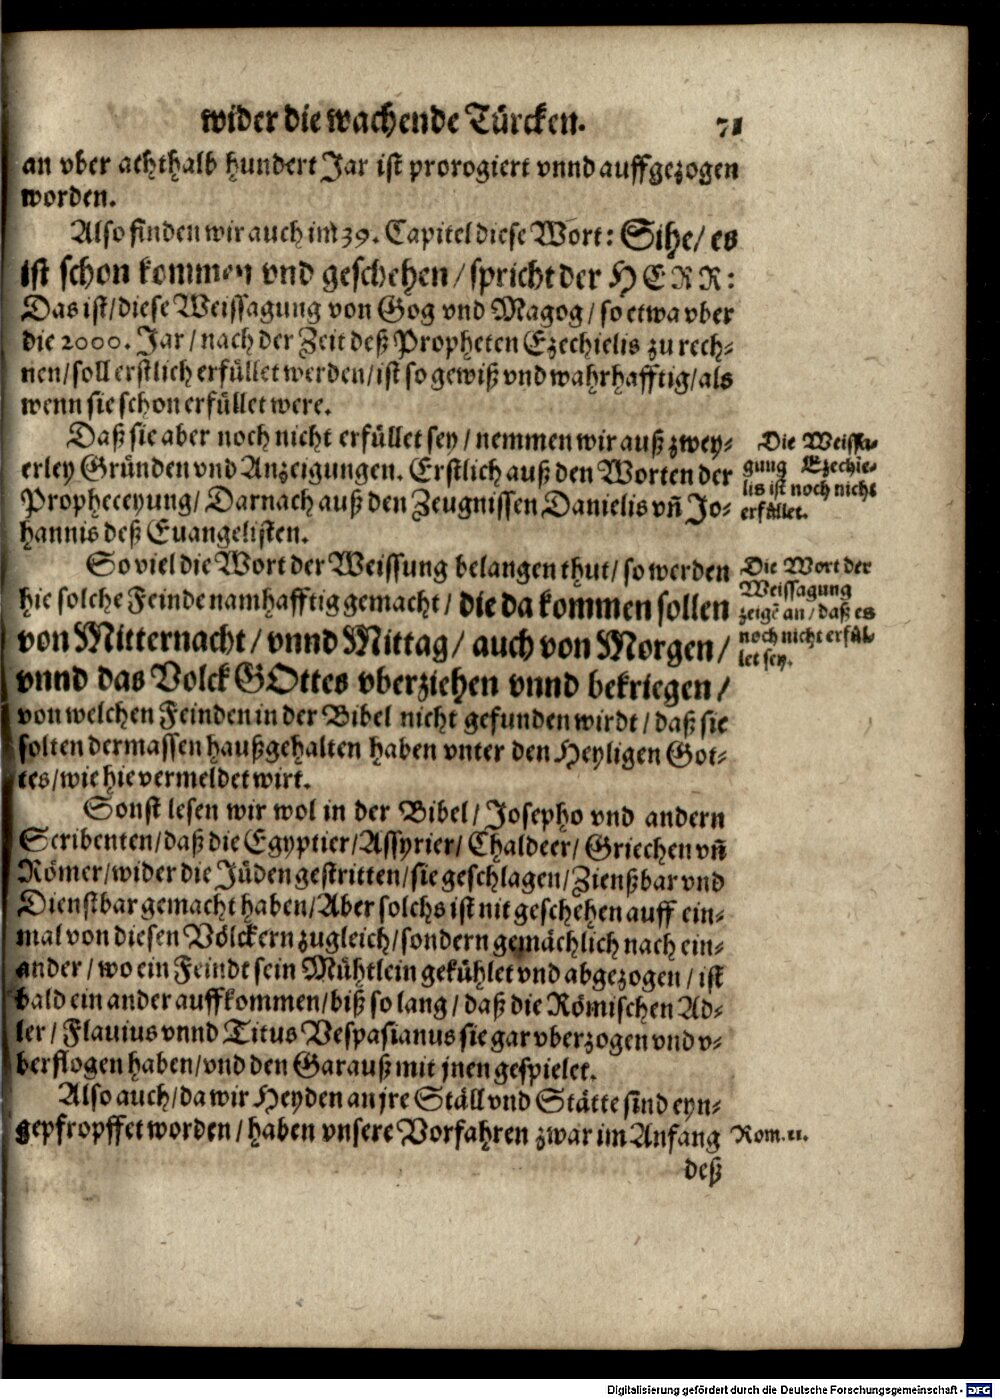 wider die wachende Türcken. 71
an vber achthalb hundert Jar ist prorogiert vnnd auffgezogen
worden.
Also finden wir auch im 39. Capitel diese Wort: Sihe/ es
ist schon kommen vnd geschehen/ spricht der HERR:
Das ist/ diese Weissagung von Gog vnd Magog/ so etwa vber
die 2000. Jar/ nach der Zeit deß Propheten Ezechielis zu rech⸗
nen/ soll erstlich erfüllet werden/ ist so gewiß vnd wahrhafftig/ als
wenn sie schon erfüllet were.
Daß sie aber noch nicht erfüllet sey/ nemmen wir auß zwey⸗
erley Gründen vnd Anzeigungen. Erstlich auß den Worten der
Propheceyung/ Darnach auß den Zeugnissen Danielis vñ Jo⸗
hannis deß Euangelisten.
Die Weissa⸗
gung Ezechie⸗
lis ist noch nicht
erfüllet.
So viel die Wort der Weissung belangen thut/ so werden
hie solche Feinde namhafftig gemacht/ die da kommen sollen
von Mitternacht/ vnnd Mittag/ auch von Morgen/
vnnd das Volck GOttes vberziehen vnnd bekriegen/
von welchen Feinden in der Bibel nicht gefunden wirdt/ daß sie
solten dermassen haußgehalten haben vnter den Heyligen Got⸗
tes/ wie hie vermeldet wirt.
Die Wort der
Weissagung
zeigẽ an/ daß es
noch nicht erfül⸗
let sey.
Sonst lesen wir wol in der Bibel/ Josepho vnd andern
Scribenten/ daß die Egyptier/ Assyrier/ Chaldeer/ Griechen vñ
Römer/ wider die Jüden gestritten/ sie geschlagen/ Zienßbar vnd
Dienstbar gemacht haben/ Aber solchs ist nit geschehen auff ein⸗
mal von diesen Völckern zugleich/ sondern gemächlich nach ein⸗
ander/ wo ein Feindt sein Mühtlein gekühlet vnd abgezogen/ ist
bald ein ander auffkommen/ biß so lang/ daß die Römischen Ad⸗
ler/ Flauius vnnd Titus Vespasianus sie gar vberzogen vnd v⸗
berflogen haben/ vnd den Garauß mit jnen gespielet.
Also auch/ da wir Heyden an jre Ställ vnd Stätte sind eyn⸗
gepfropffet worden/ haben vnsere Vorfahren zwar im Anfang
Rom. 11.
deß
Digitalisierung gefördert durch die Deutsche Forschungsgemeinschaft - DFG